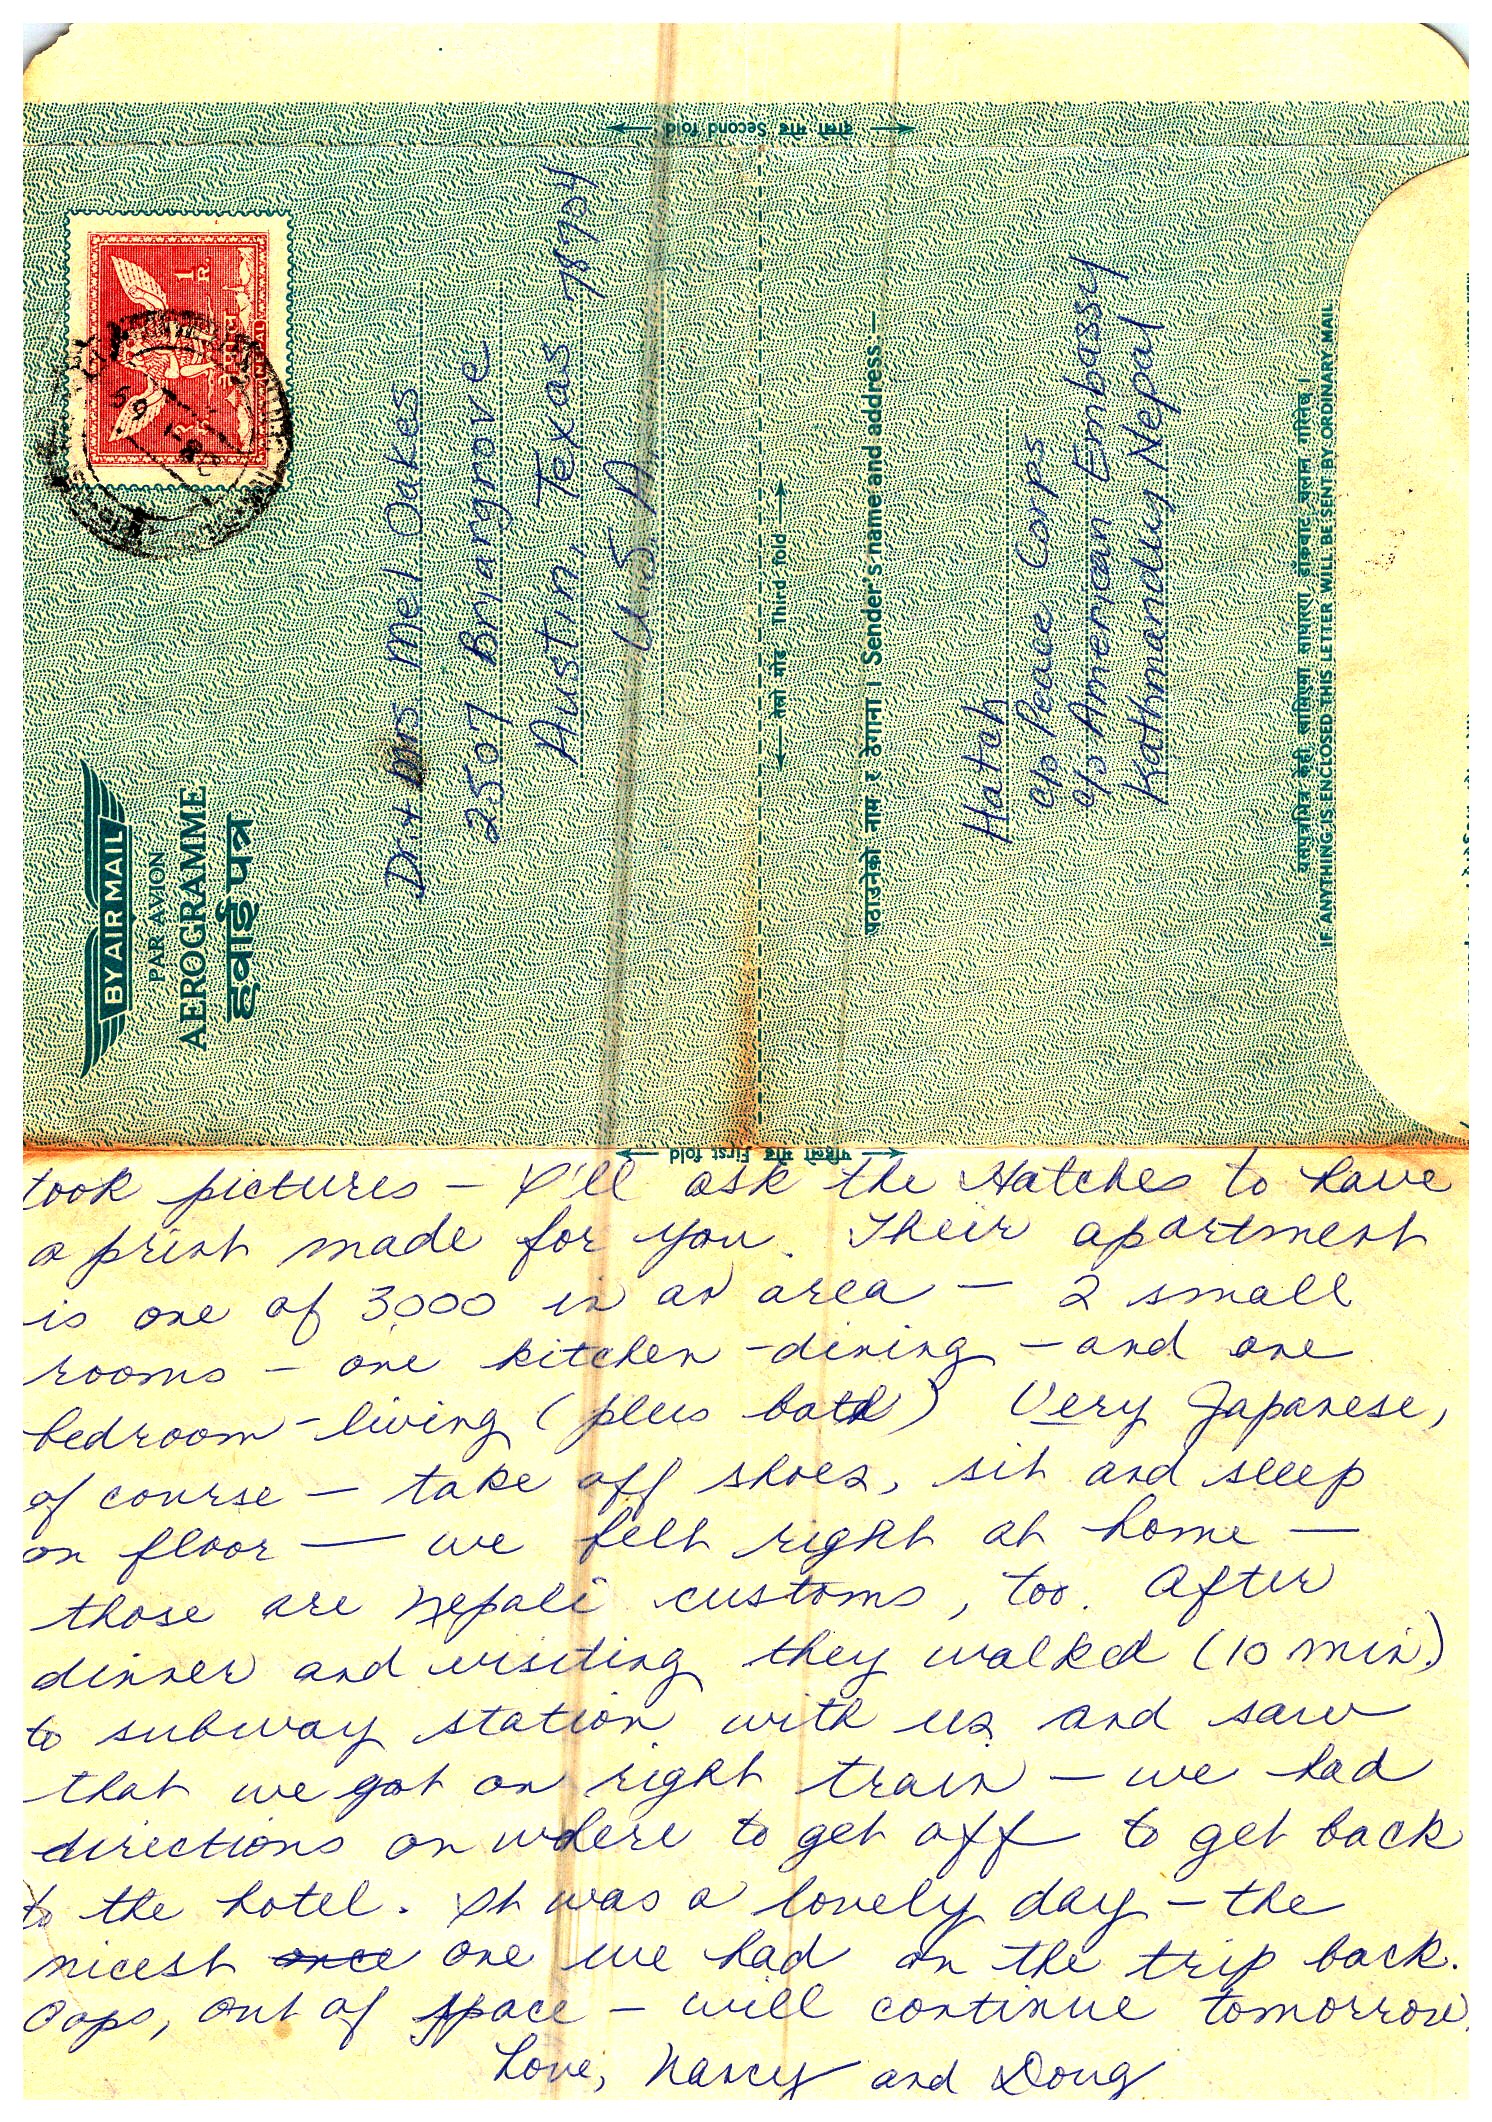 दोस्रो मोड Second fold
नेपाल
NEPAL
1
R.
BY AIR MAIL
PAR AVION
AEROGRAMME
हवाई पत्र
Dr. + Mrs Mel Oakes
2507 Briargrove
Austin, Texas 78704
U S A
तेस्रो मोड Third fold
पठाउनेको नाम र ठेगाना। Sender's name and address
Hatch
c/o Peace Corps
c/o American Embassy
Kathmandu, Nepal
यसपत्रभित्र केही राखिएमा साधारण डाँकबाट चलान गरिनेछ।
IF ANYTHING IS ENCLOSED THIS LETTER WILL BE SENT BY ORDINARY MAIL
पहिलो मोड First fold
took pictures – I'll ask the Hatches to have
a print made for you. Their apartment
is one of 3000 in an area – 2 small
rooms – one kitchen-dining – and one
bedroom-living (plus bath) Very Japanese,
of course – take off shoes, sit and sleep
on floor — we felt right at home —
those are Nepali customs, too. After
dinner and visiting they walked (10 min.)
to subway station with us and saw
that we got on right train – we had
directions on where to get off to get back
to the hotel. It was a lovely day – the
nicest once one we had on the trip back.
Oops, out of space – will continue tomorrow.
Love, Nancy and Doug